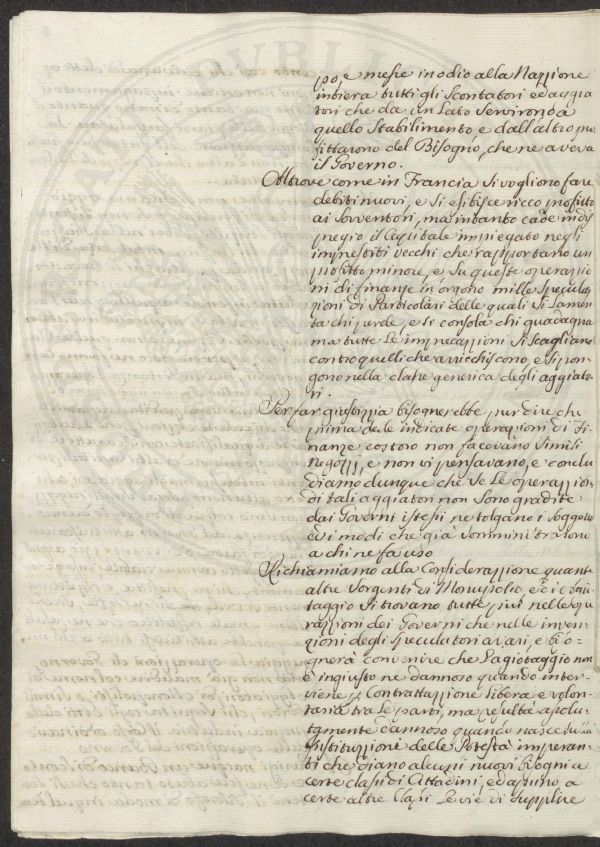 po, e messe in odio alla Nazzione
intiera tutti gli Scontatori ed aggia
tori che da un Lato Servirono a
quello Stabilimento, e dall'altro pro
fittarono del Bisogno, che ne aveva
il Governo.
Altrove come in Francia Si vogliono fare
debiti nuovi, e Si esibisce ricco profitto
ai Sovventori, ma intanto cade in dis
pregio il Capitale impiegato negli
imprestiti vecchi che rapportano un
profitto minore, e Su queste operazzio
ni di finanze insorgono mille Specula
zioni di Particolari delle quali Si lamen
ta chi perde, e Si consola chi guadagna
ma tutte Le imprecazzioni Si Scagliano
contro quelli che arricchiscono, e Si pon
gono nella classe generica degli aggiato
ri.
Per far giustizzia bisognerebbe pur dire che
prima delle indicate operazioni di Fi
nanze costoro non facevano Simili
negozj, e non vi pensavano, e conclu
diamo dunque che Se Le operazzioni
di tali aggiatori non Sono gradite
dai Governi istessi ne tolgano i Soggetti
ed i modi che già Somministrarono
a chi ne fa uso
Richiamiamo alla Considerazzione quante
altre Sorgenti di Monopolio, e di
taggio Si trovano tutte più nelle ope
razzioni dei Governi che nelle inven
zioni degli Speculatori avari, e biso=
gnerà convenire che L'agiotaggio non
è ingiusto ne dannoso quando inter
viene p Contrattazzione Libera e volon
taria tra Le parti, ma risulta assolu
tamente dannoso quando nasce da una
istituzzione delle Potestà imperan
ti che diano alcuni nuovi bisogni a
certe classi di Cittadini, ed aprino a
certe altre Classi Le vie di Supplire